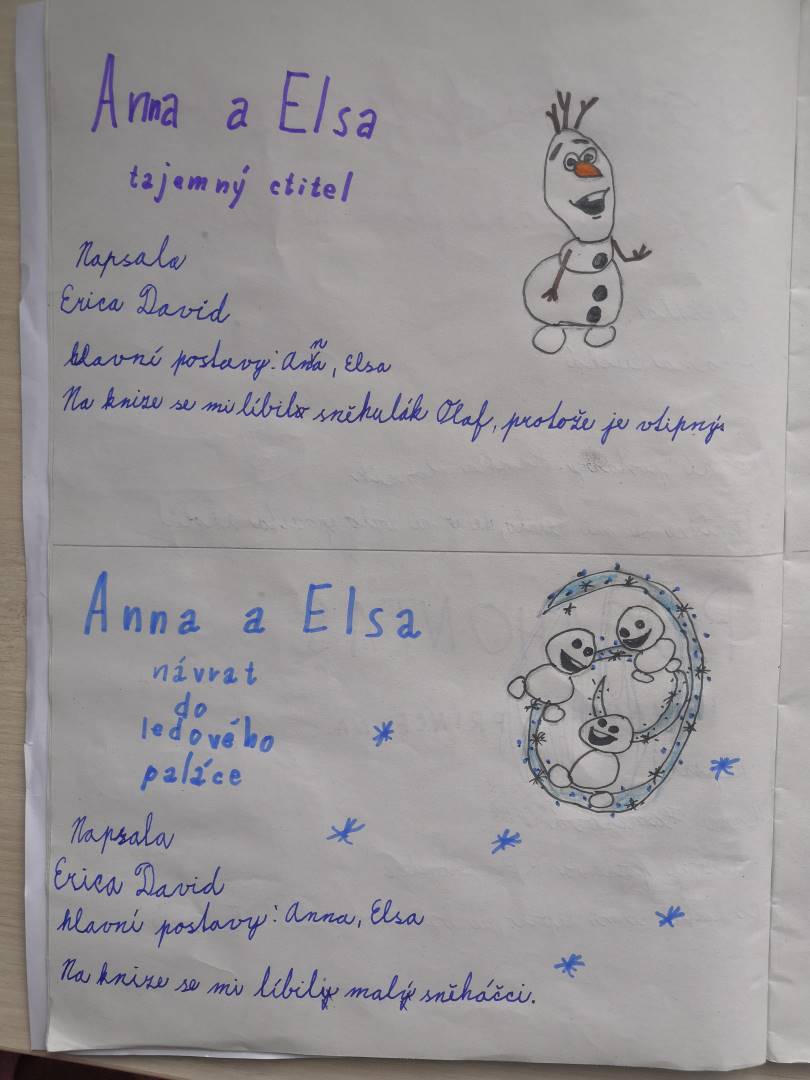 Anna a Elsa
tajemný ctitel
Napsala
Erica David
hlavní postavy: Anna, Elsa
Na knize se mi líbil sněhulák Olaf, protože je vtipný.
Anna a Elsa
návrat
do
ledového
paláce
Napsala
Erica David
hlavní postavy: Anna, Elsa
Na knize se mi líbily malý sněháčci.